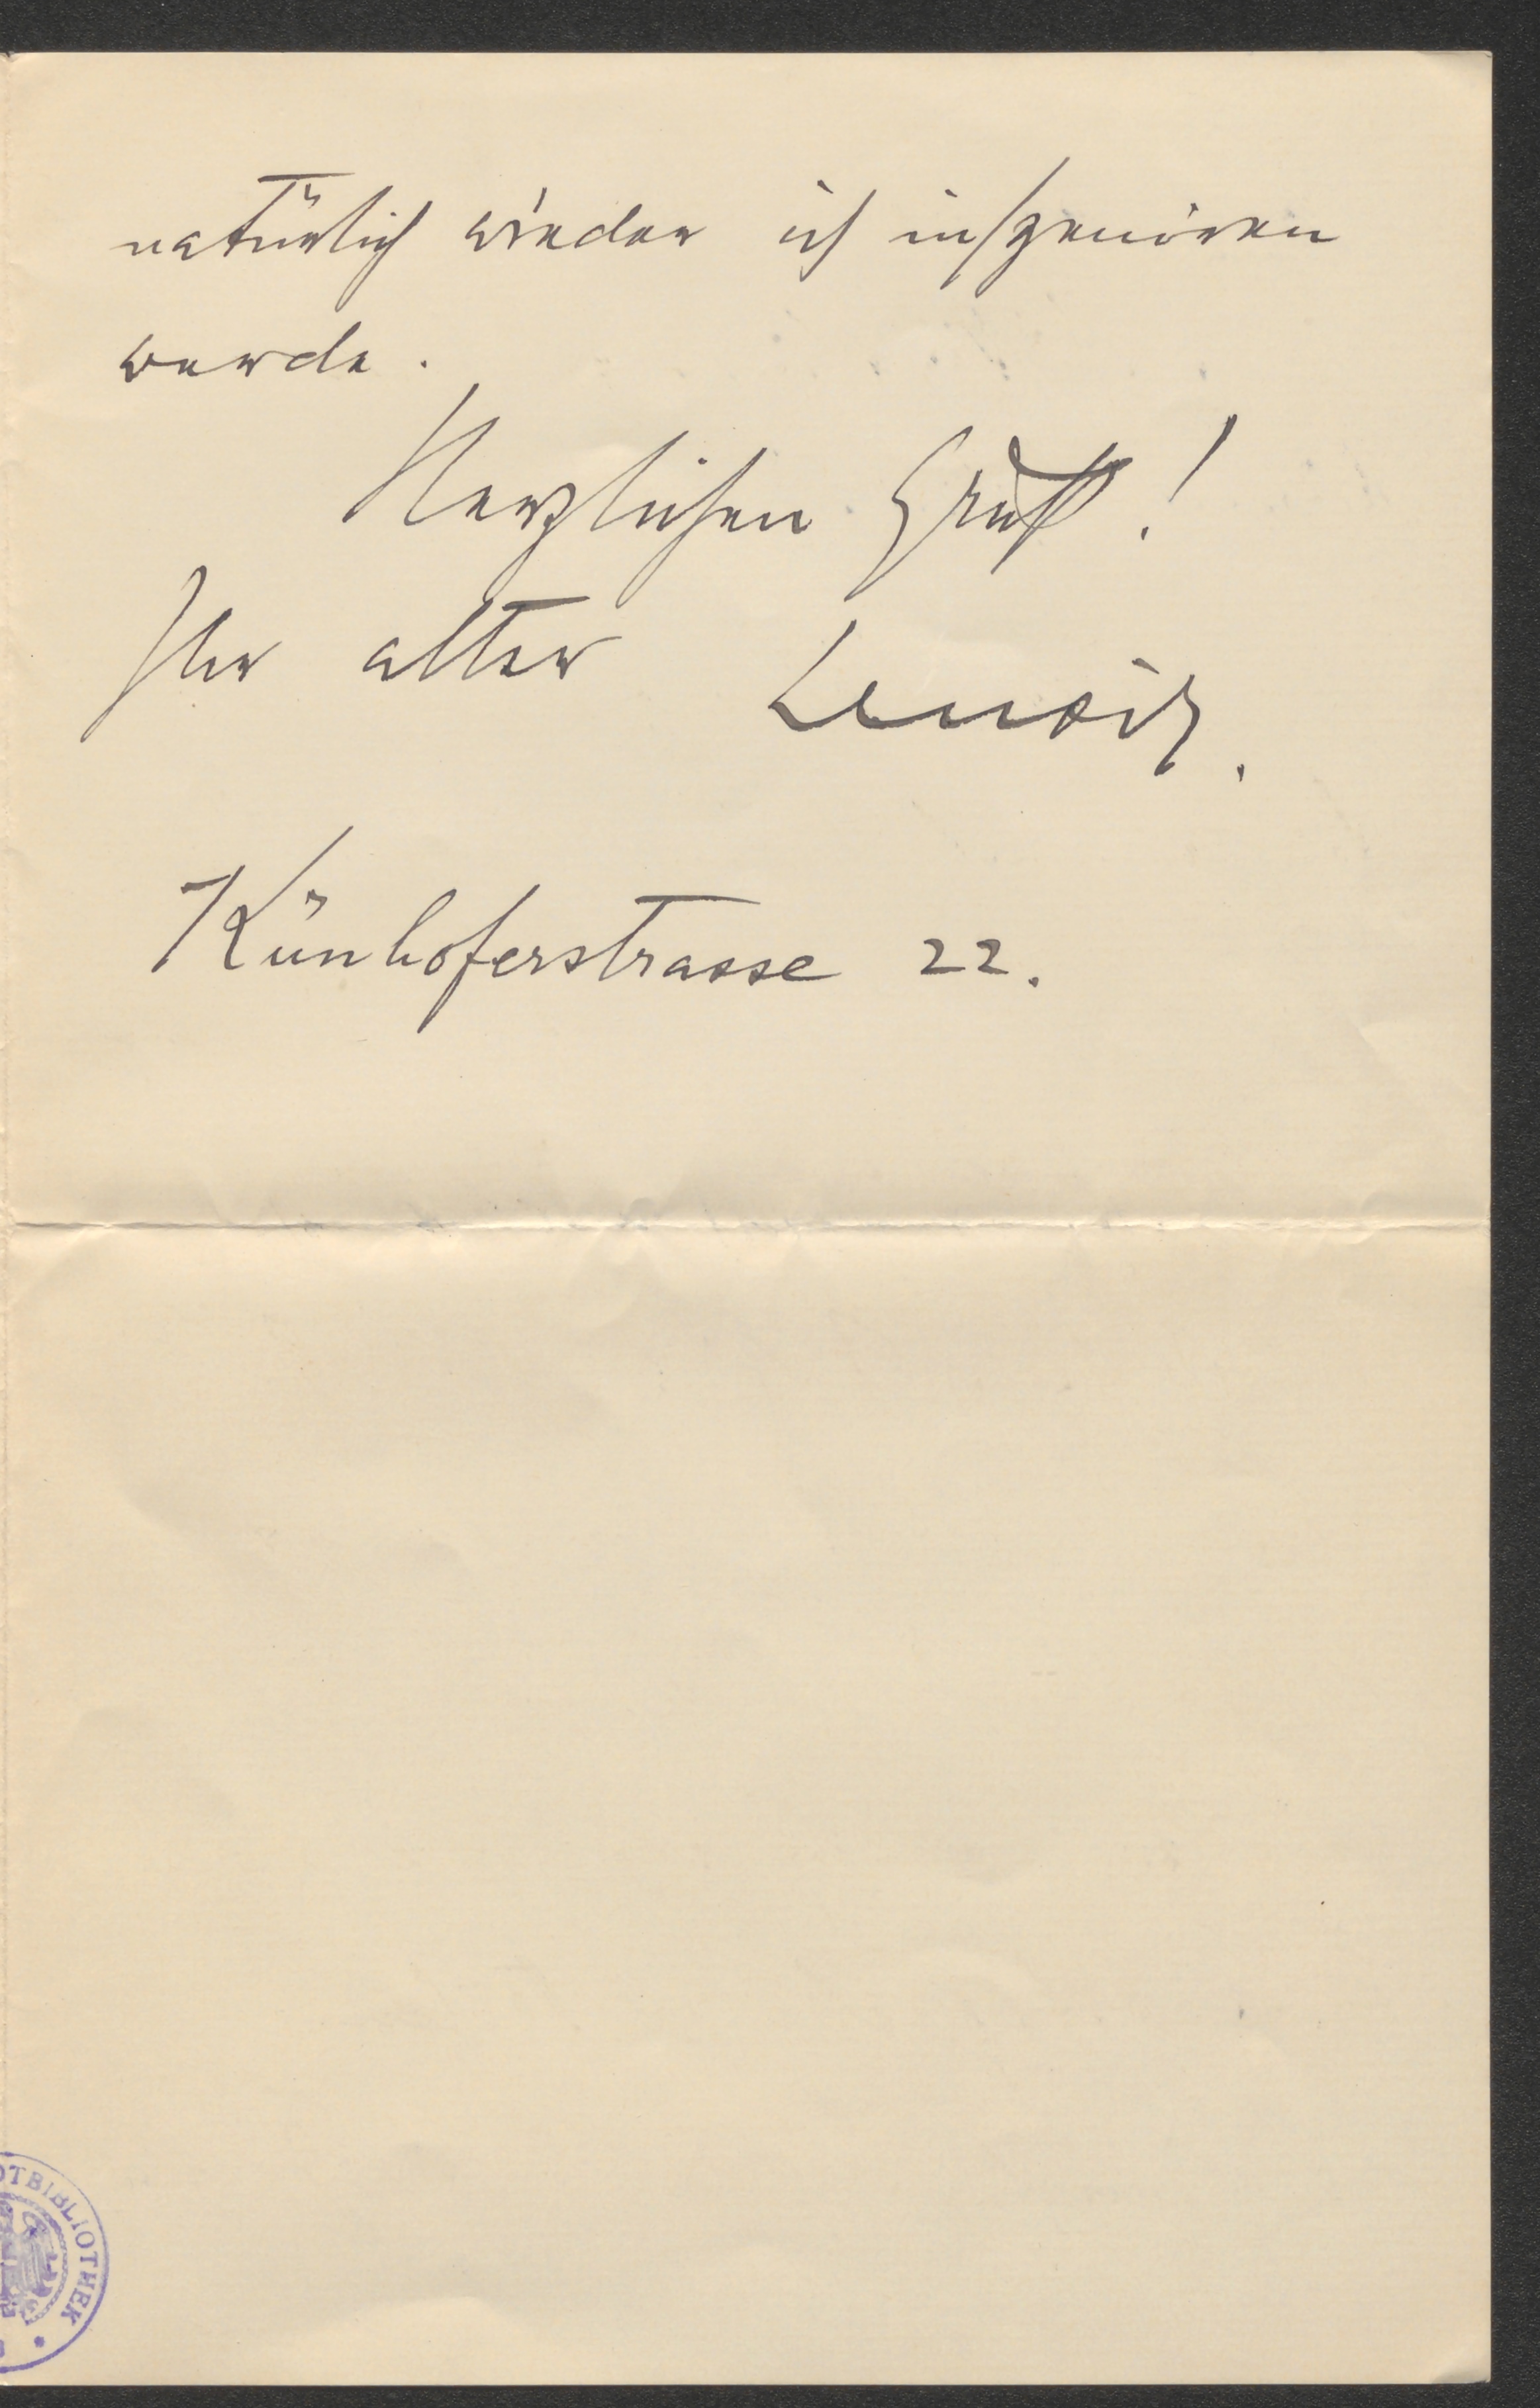 natürlich wieder ich inszeniren
werde.
Herzlichen Gruß!
Ihr alter Lenoir.
Künhoferstrasse 22.
OTBIBLIOTHEK